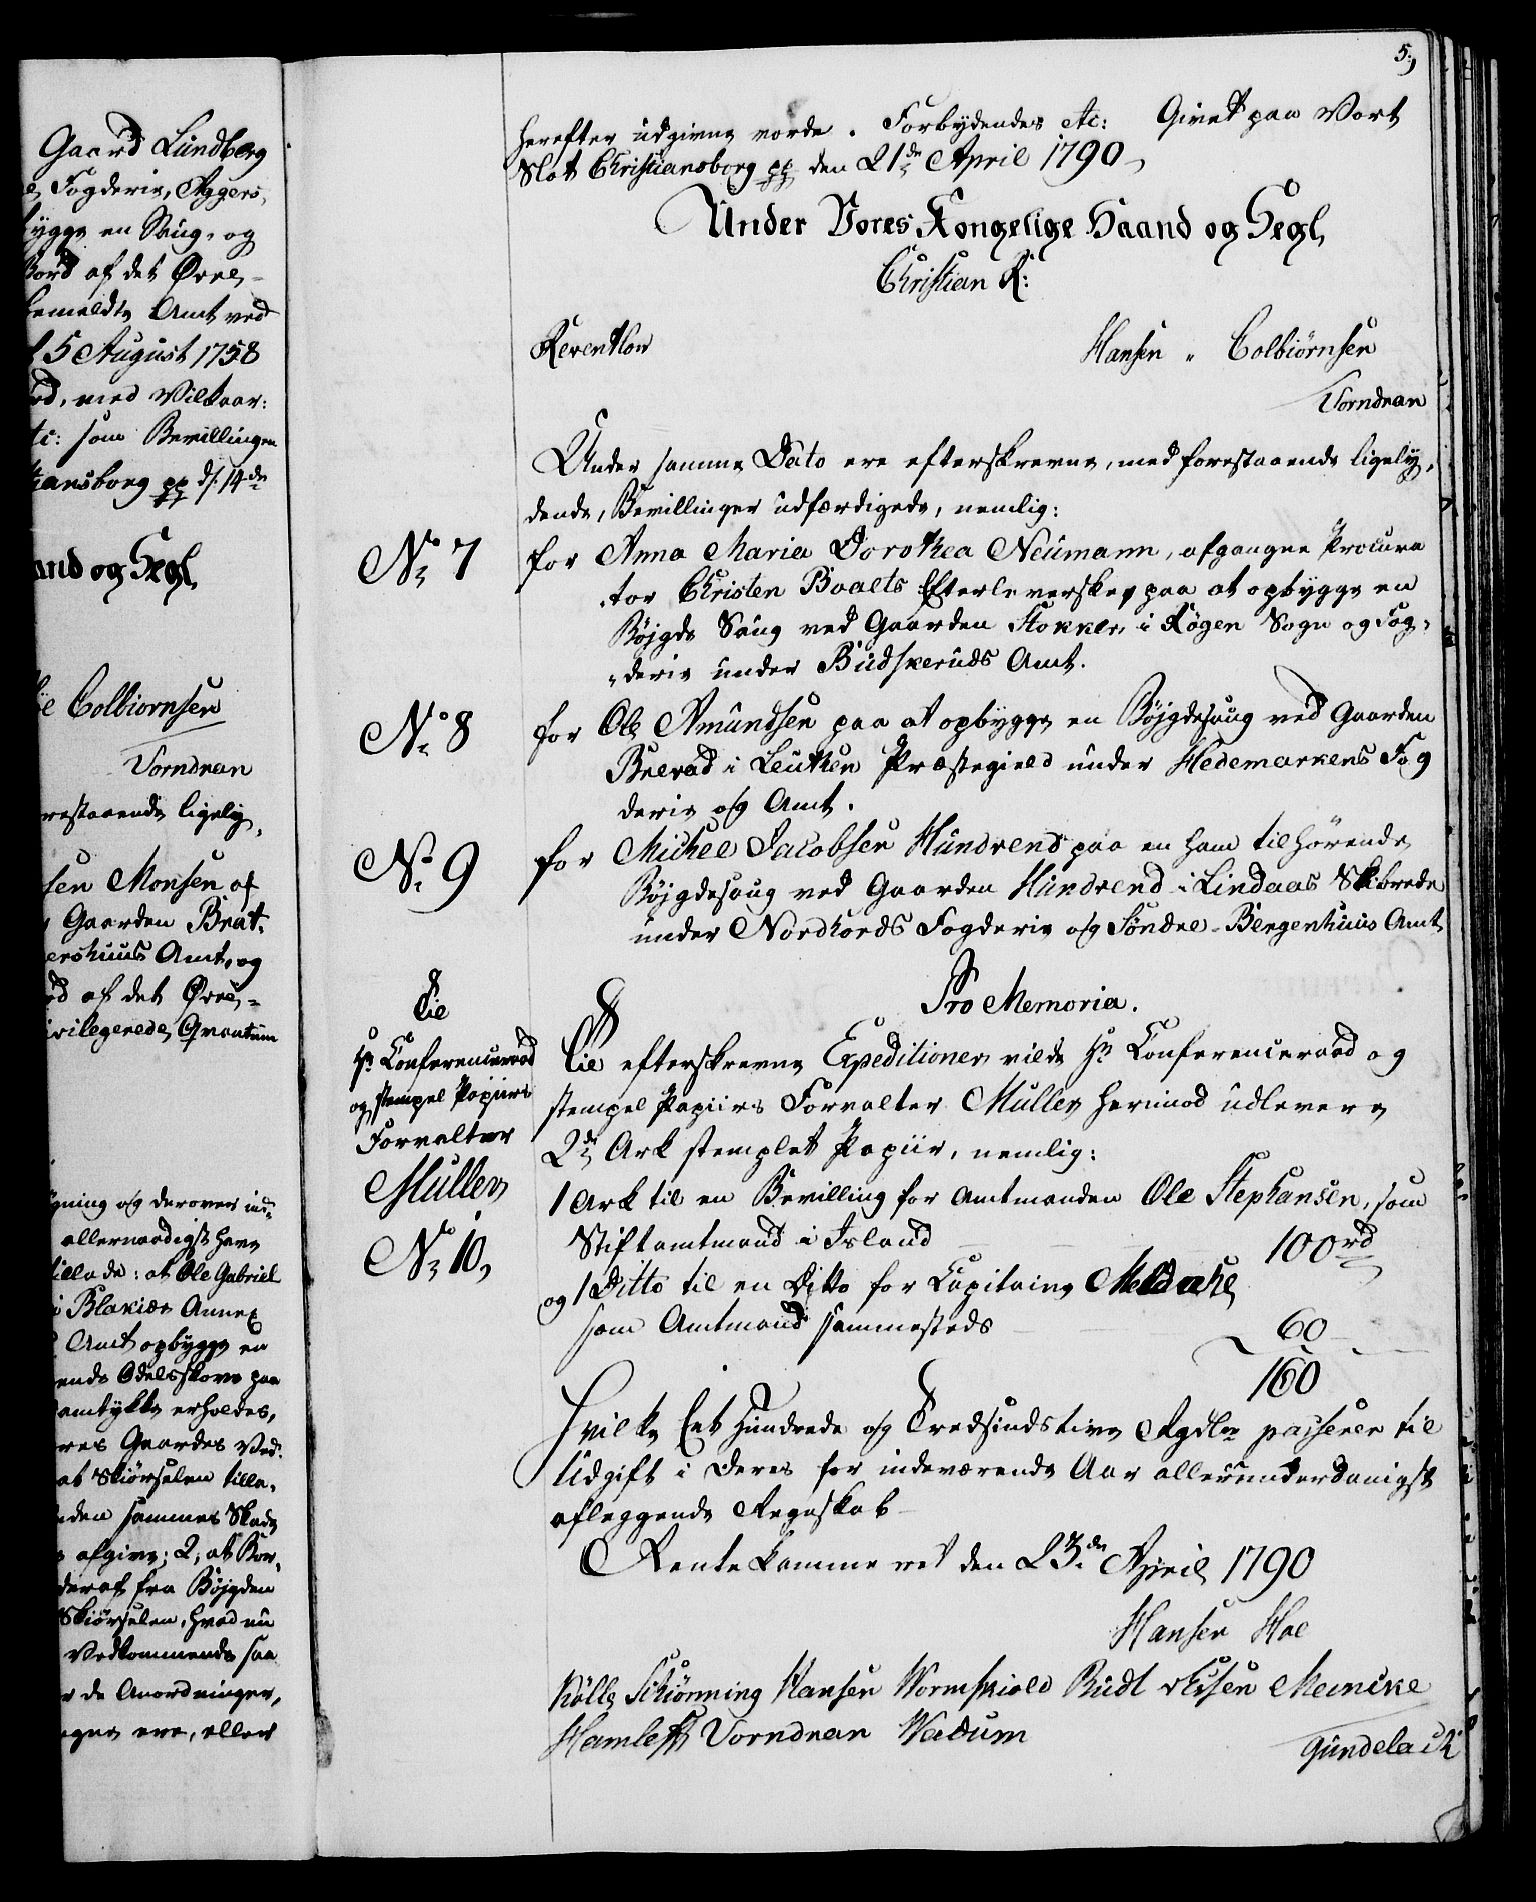 Gaard Lundberg
Fogderie, Aggers-
bygge en Saug, og
Bord af det Øvre-
bemeldte Amt ved
5 August 1758
med Vilkaar:
etc: som Bevillingen
tiansborg pp d. 14de
and og Segl,
Colbiornsen
Vorndran
restaaende ligely-
sen Monsen af
Gaarden Brat-
ershuus Amt, og
rd af det Øvre-
ivilegerede Qvantum
gning og derover ind-
allernaadigst have
tillade: at Ole Gabriel
Blakiær Annex
Amt opbygge en
ende Odelsskove paa
samtykke erholdes,
res Gaardes Ved-
at Skiørselen tilla-
den sammes Skade
afgive; 2, at Bor-
deraf fra Bøjgden
Skiørselen, hvad nu
Vedkommende saa
de Anordninger,
ere, eller
5,
herefter udgivne vorde. Forbydendes etc: Givet paa Vort
Slot Christiansborg pp den 21de April 1790,
Under Vores Kongelige Haand og Segl,
Christian R:
Reventlow
Hansen " Colbiørnsen
Vorndran
Under samme Dato ere efterskrevne, med forestaaende ligely-
dende, Bevillinger udfærdigede, nemlig:
No 7 for Anna Maria Dorothea Neumann, afgangne Procura
tor Christen Boalts Efterleverske, paa at opbygge en
Bøjgde Saug ved Gaarden Stokker i Røgen Sogn og Fog-
derie under Budskeruds Amt.
No 8 for Ole Amundsen paa at opbygge en Bøjgdesaug ved Gaarden
Brerud i Leuthen Præstegield under Hedemarkens Fog
derie og Amt.
No 9 for Michel Jacobsen Hundvend paa en ham tilhørende
Bøjgdesaug ved Gaarden Hundvend i Lindaas Skibrede
under Nordhords Fogderie og Søndre-Bergenhuus Amt
Pro Memoria.
Til
Hr Conferenceraad
og stempel Papiirs
Forvalter
Müller
No 10,
Til efterskrevne Expeditioner vilde Hr Conferenceraad og
stempel Papiirs Forvalter Müller herimod udlevere
2de Ark stemplet Papiir, nemlig:
1 Ark til en Bevilling for Amtmanden Ole Stephansen, som
Stiftamtmand i Island 100 rd
og 1 Ditto til en Ditto for Capitaine Meldahl
som Amtmand sammesteds 60
160
Hvilke Eet Hundrede og Tredsindstive Rgdlr passerer til
Udgift i Deres for indeværende Aar allerunderdanigst
aflæggende Regnskab
Rentekammeret den 23de April 1790
Hansen Hoe
Kølle Schiønning Hansen Wormskiold Rudt Meincke
Hamleff Vorndran Wadum
Gundelach